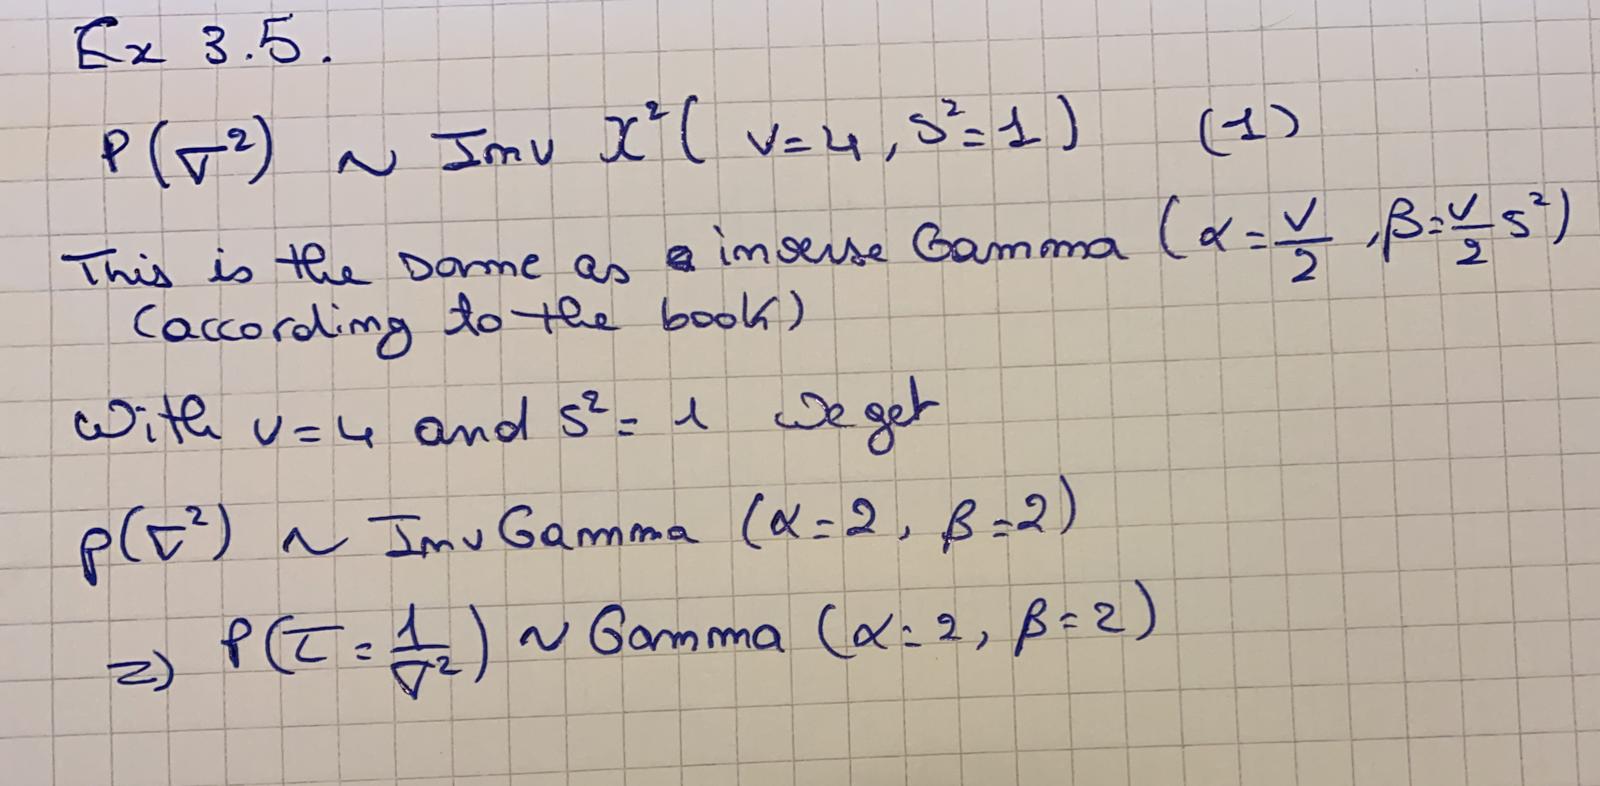 Ex 3.5.
P(σ²) ~ Inv χ²( ν=4, s²=1) (1)
This is the same as a inverse Gamma (α=ν/2, β=ν/2 s²)
(according to the book)
With ν=4 and s²=1 we get
p(σ²) ~ Inv Gamma (α=2, β=2)
=) P(τ=1/σ²) ~ Gamma (α=2, β=2)